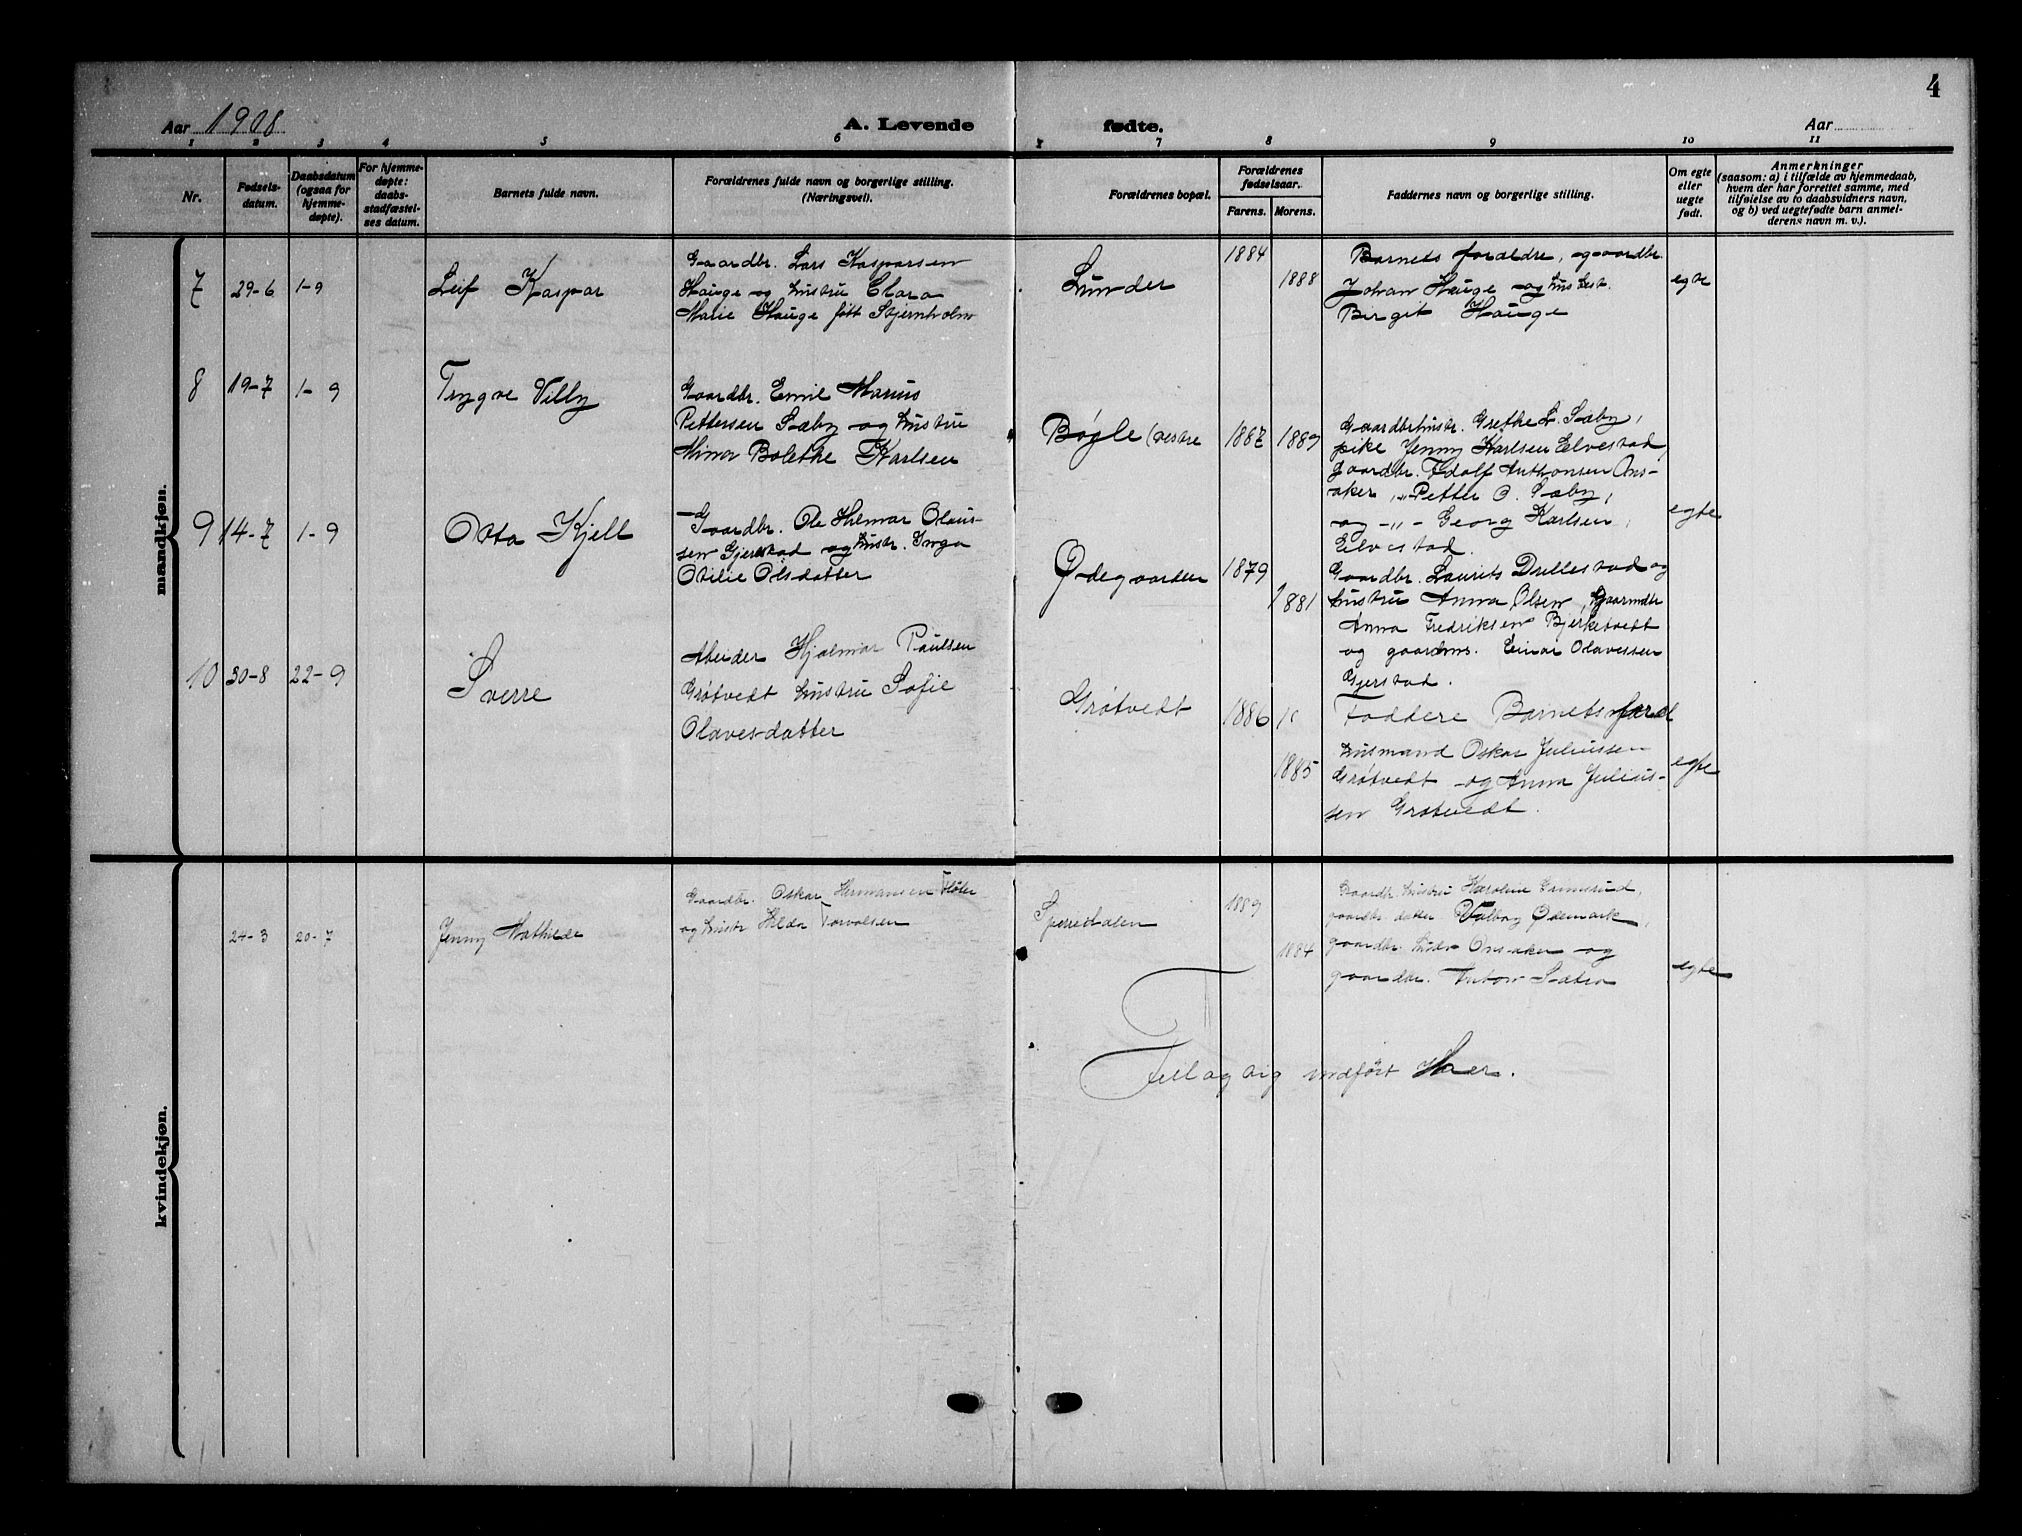 4
Aar 1908
A. Levende fødte.
Aar
1 2 3 4 5 6 7 8 9 10 11
Nr.
Fødsels-
datum.
Daabsdatum
(ogsaa for
hjemme-
døpte).
For hjemme-
døpte:
daabs-
stadfæstel-
ses datum.
Barnets fulde navn.
Forældrenes fulde navn og borgerlige stilling.
(Næringsvei).
Forældrenes bopæl.
Forældrenes
fødselsaar.
Farens. Morens.
Faddernes navn og borgerlige stilling.
Om egte
eller
uegte
født.
Anmerkninger
(saasom: a) i tilfælde av hjemmedaab,
hvem der har forrettet samme, med
tilføielse av to daabsvidners navn,
og b) ved uegtefødte barn anmel-
derens navn m. v.).
mandkjøn.
7 29-6 1-9
Leif Kaspar
Gaardbr. Lars Kasparsen
Hauge og hustru Clara
Marie Hauge født Stjernholm
Lunder
1884
1888
Barnets forældre, gaardbr.
Johan Hauge og hustr.
Bergit Hauge
egte
8 19-7 1-9
Trygve Villy
Gaardbr. Emil Marius
Pettersen Sæby og hustru
Mina Bolethe Karlsen
Bøgle (vestre
1887 1889
Gaardbrhustr. Grethe L. Sæby,
pike Jenny Karlsen Elvestad,
gaardbr. Adolf Anthonsen Ons-
aker, -„- Petter O. Sæby,
og -„- Georg Karlsen,
Elvestad.
egte
9 14-7 1-9
Otto Kjell
Gaardbr. Ole Hilmar Olaus-
sen Gjerstad og hustr. Inga
Otilie Olsdatter
Ødegaarden
1879
1881
Gaardbr. Laurits Dullestad og
hustru Anna Olsen,
Anna Fredriksen Bjerketvedt
og gaardms. Einar Olavessen
Gjerstad.
10 30-8 22-9
Sverre
Abeider Hjalmar Paulsen
Grøtvedt hustru Sofie
Olavesdatter
Grøtvedt
1886
1885
Faddere Barnets
husmand Oskar Juliussen
Grøtvedt og Anna Julius-
sen Grøtvedt.
egte
kvindekjøn.
24-3 20-7
Jenny Mathilde
Gaardbr. Oskar Hermansen
og hustr Hilda Torvalsen
1889
1884
Gaardbr hustru Karoline Grimsrud,
gaardbr. datter Valborg Ødemark,
gaardbr. Onsaker og
gaardbr. Anton Sætra
egte
indført